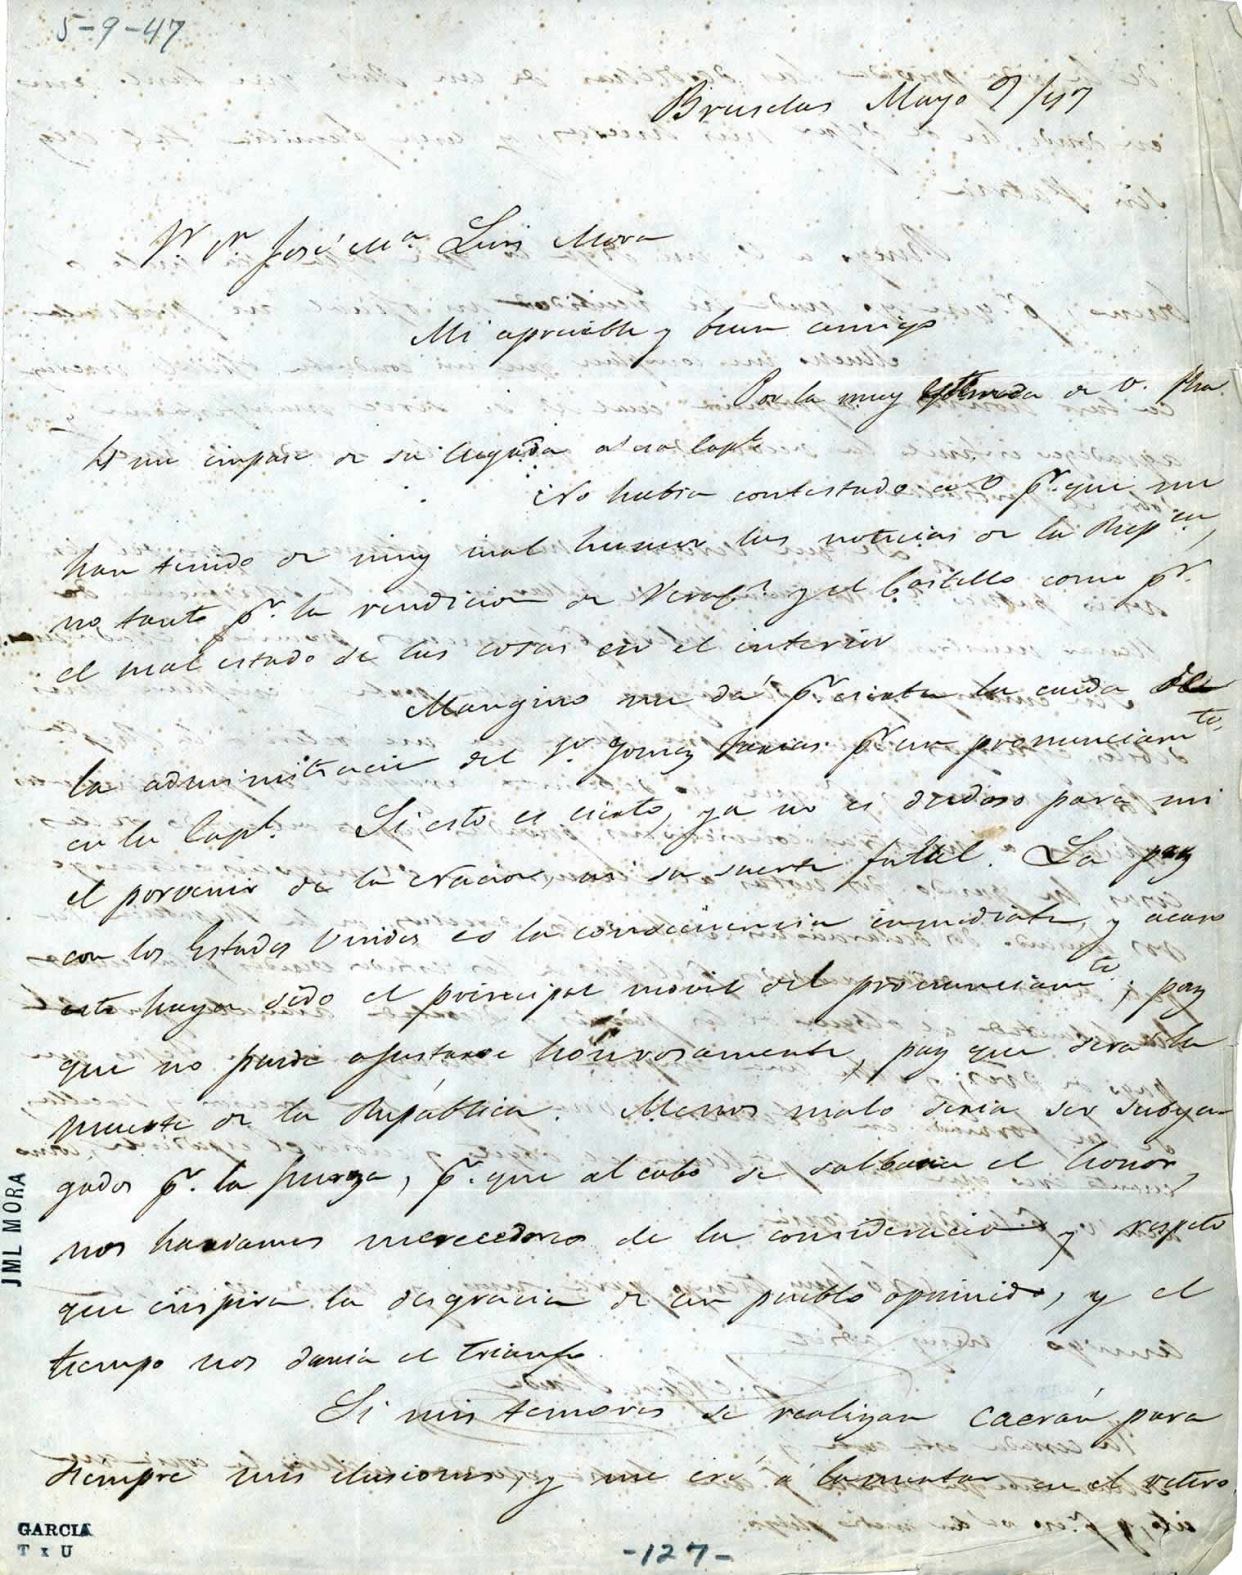 5-9-47
Bruselas Mayo 9/47
Sr. Dn. José Ma. Luis Mora
Mi apreciable y buen amigo
Por la muy estimada de V. fha.
4 me impuse de su llegada a esa Capl.
No habia contestado a V. pr. que me
han tenido de muy mal humor las noticias de la Repca.,
no tanto pr. la rendicion de Veracz. y el Castillo como pr.
el mal estado de las cosas en el interior
Mangino me dá pr. cierta la caida de
la administracion del Sr. Gomez Farias pr. un pronunciamto.
en la Capl. Si esto es cierto, ya no es dudoso para mi
el porvenir de la Nacion, ni su suerte fatal. La paz
con los Estados Unidos es la consecuencia inmediata, y acaso
esta haya sido el principal movil del pronunciamto.; paz
que no puede ajustarse honrosamente, paz que sera la
muerte de la República. Menos malo seria ser subyu
gados pr. la fuerza, pr. que al cabo se salbaria el honor,
nos hariamos merecedores de la consideracion y respeto
que inspira la desgracia de un pueblo oprimido, y el
tiempo nos daria el triunfo.
Si mis temores se realizan caerán para
siempre mis ilusiones, y me iré á lamentar en el retiro
JML MORA
GARCIA
T x U
-127-